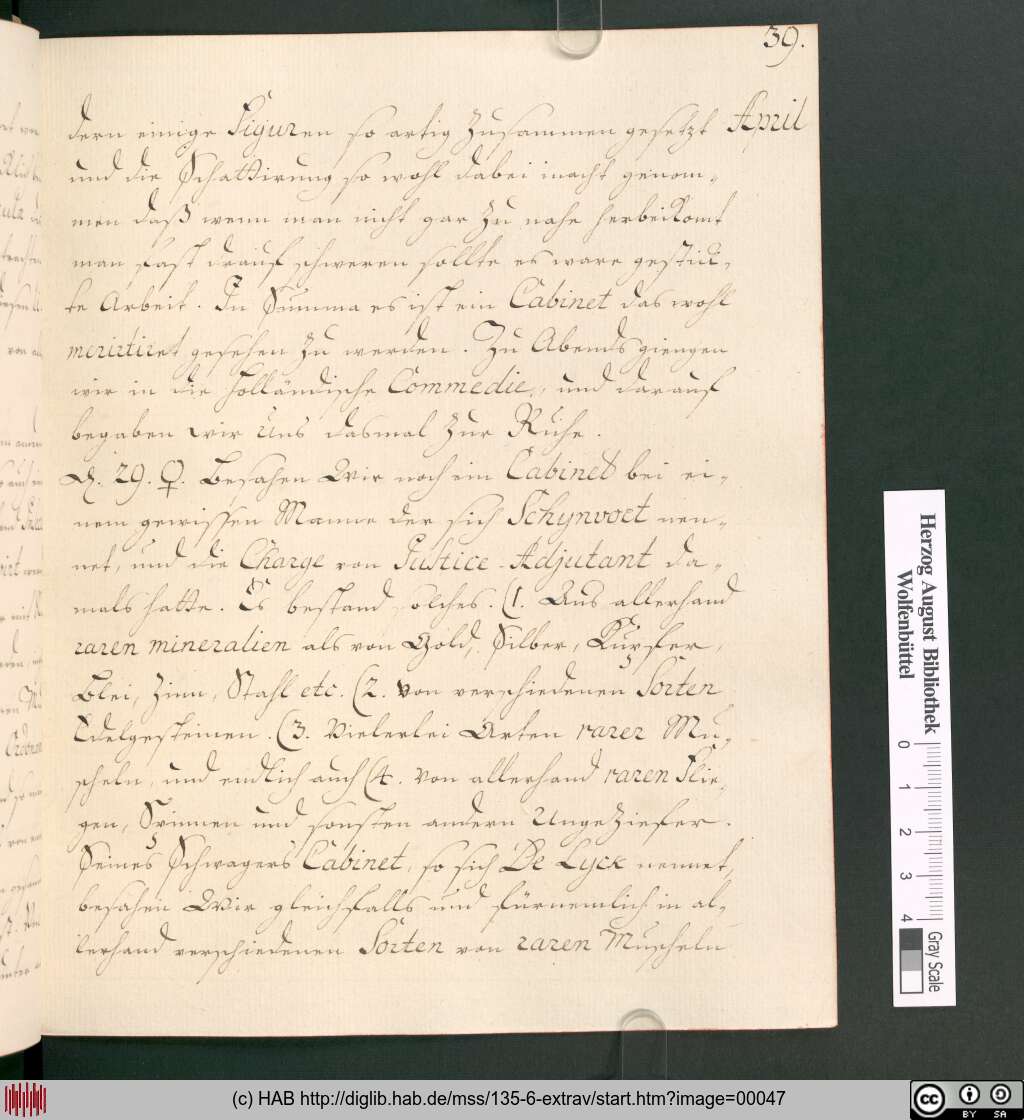 39.
April
dern einige Figuren so artig zusammen gesetzt
und die Schattirung so wohl dabei inacht genom-
men daß wenn man nicht gar zu nahe herbeikomt
man fast drauf schweren sollte es ware gestick-
te Arbeit. In Summa es ist ein Cabinet das wohl
meritiret gesehen zu werden. Zu Abends giengen
wir in die Holländische Commedie, und darauf
begaben wir uns dasmal zur Ruhe.
D. 29. ♀. Besahen Wir noch ein Cabinet bei ei-
nem gewissen Manne der sich Schynvoet nen-
net, und die Charge von Justice-Adjutant da-
mals hatte. Es bestand solches. (1. Aus allerhand
raren mineralien als von Gold, Silber, Kupfer,
Blei, Zinn, Stahl etc. (2. von verschiedenen Sorten
Edelgesteinen. (3. Vielerlei Arten rarer Mu-
scheln, und endlich auch (4. von allerhand raren Flie-
gen, Spinnen und sonsten andern Ungeziefer.
Seines Schwagers Cabinet, so sich De Lyck nennet,
besahen Wir gleichfalls und fürnemlich in al-
lerhand verschiedenen Sorten von raren Muscheln
Herzog August Bibliothek
Wolfenbüttel
0 1 2 3 4
Gray Scale
(c) HAB http://diglib.hab.de/mss/135-6-extrav/start.htm?image=00047
cc BY SA